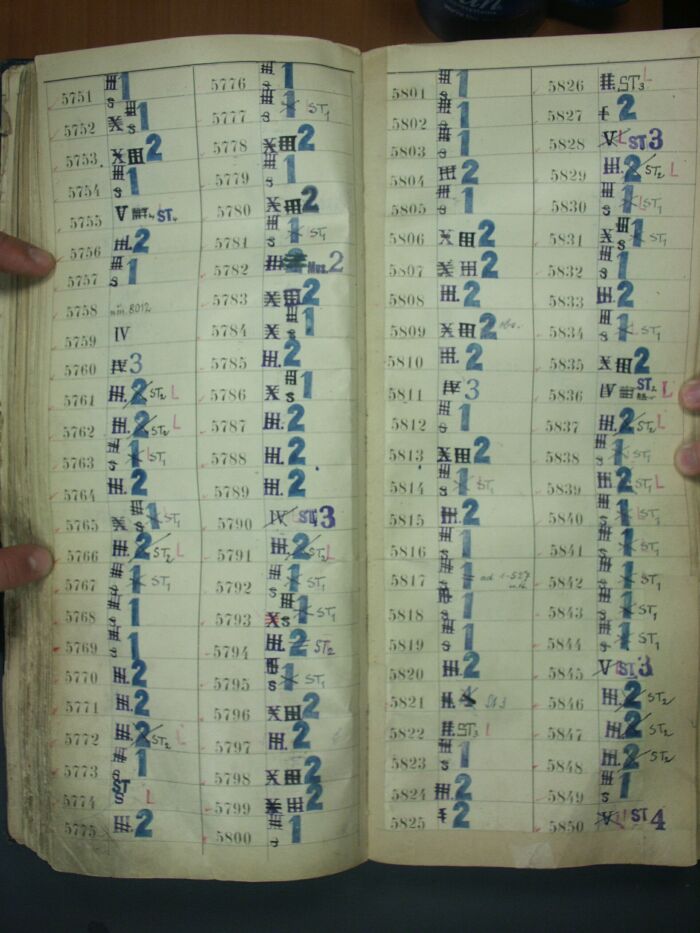 5751 III S 1
5752 X III S 1
5753 X III 2
5754 III S 1
5755 V ST.
5756 III. 2
5757 III S 1
5758
5759 IV
5760 IV 3
5761 III. 2 ST2 L
5762 III. 2 ST2 L
5763 III S 1 L ST1
5764 III. 2
5765 X III S 1 L ST1
5766 III. 2 ST2 L
5767 III S 1 ST1
5768 III S 1
5769 III S 1
5770 III. 2
5771 III. 2
5772 III. 2 ST2 L
5773 III S 1
5774 ST S L
5775 III. 2
5776 III S 1
5777 III S 1 ST1
5778 X III 2
5779 III S 1
5780 X III 2
5781 III S 1 ST1
5782 III Mus. 2
5783 X III 2
5784 X III S 1
5785 III. 2
5786 X III S 1
5787 III. 2
5788 III. 2
5789 III. 2
5790 IV L ST 3
5791 III. 2 ST2 L
5792 III S 1 ST1
5793 X III S 1 ST1
5794 III. 2 ST2
5795 III S 1 ST1
5796 X III 2
5797 III. 2
5798 X III 2
5799 X III 2
5800 III S 1
5801 III S 1
5802 III S 1
5803 III S 1
5804 III. 2
5805 III S 1
5806 X III 2
5807 X III 2
5808 III. 2
5809 X III 2
5810 III. 2
5811 IV 3
5812 III S 1
5813 X III 2
5814 III S 1 ST1
5815 III. 2
5816 III S 1
5817 III S 1 ad 1-527
5818 III S 1
5819 III S 1
5820 III. 2
5821 II. St3
5822 II. ST3 L
5823 III S 1
5824 III. 2
5825 I 2
5826 II. ST3 L
5827 I 2
5828 V L ST 3
5829 III. 2 ST2 L
5830 III S 1 L ST1
5831 X III S 1 ST1
5832 III S 1
5833 III. 2
5834 III S 1 ST1
5835 X III 2
5836 IV ST. L
5837 III. 2 ST2 L
5838 III S 1 ST1
5839 III. 2 ST2 L
5840 III S 1 L ST1
5841 III S 1 ST1
5842 III S 1 ST1
5843 III S 1 ST1
5844 III S 1 ST1
5845 V L ST 3
5846 III. 2 ST2
5847 III. 2 ST2
5848 III. 2 ST2
5849 III S 1
5850 V L ST 4